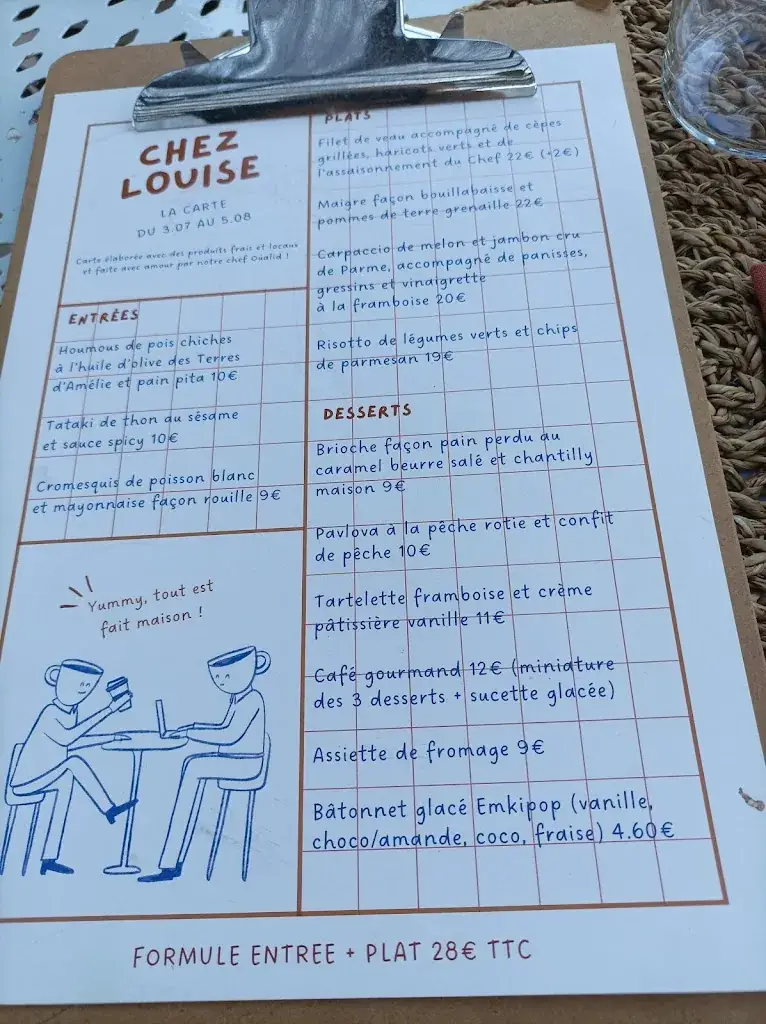 CHEZ
LOUISE
LA CARTE
DU 3.07 AU 5.08
Carte élaborée avec des produits frais et locaux
et faite avec amour par notre chef Oualid !
ENTRÉES
Houmous de pois chiches
à l'huile d'olive des Terres
d'Amélie et pain pita 10€
Tataki de thon au sésame
et sauce spicy 10€
Cromesquis de poisson blanc
et mayonnaise façon rouille 9€
Yummy, tout est
fait maison !
PLATS
Filet de veau accompagné de cèpes
grillées, haricots verts et de
l'assaisonnement du Chef 22€ (+2€)
Maigre façon bouillabaisse et
pommes de terre grenaille 22€
Carpaccio de melon et jambon cru
de Parme, accompagné de panisses,
gressins et vinaigrette
à la framboise 20€
Risotto de légumes verts et chips
de parmesan 19€
DESSERTS
Brioche façon pain perdu au
caramel beurre salé et chantilly
maison 9€
Pavlova à la pêche rotie et confit
de pêche 10€
Tartelette framboise et crème
pâtissière vanille 11€
Café gourmand 12€ (miniature
des 3 desserts + sucette glacée)
Assiette de fromage 9€
Bâtonnet glacé Emkipop (vanille,
choco/amande, coco, fraise) 4.60€
FORMULE ENTREE + PLAT 28€ TTC